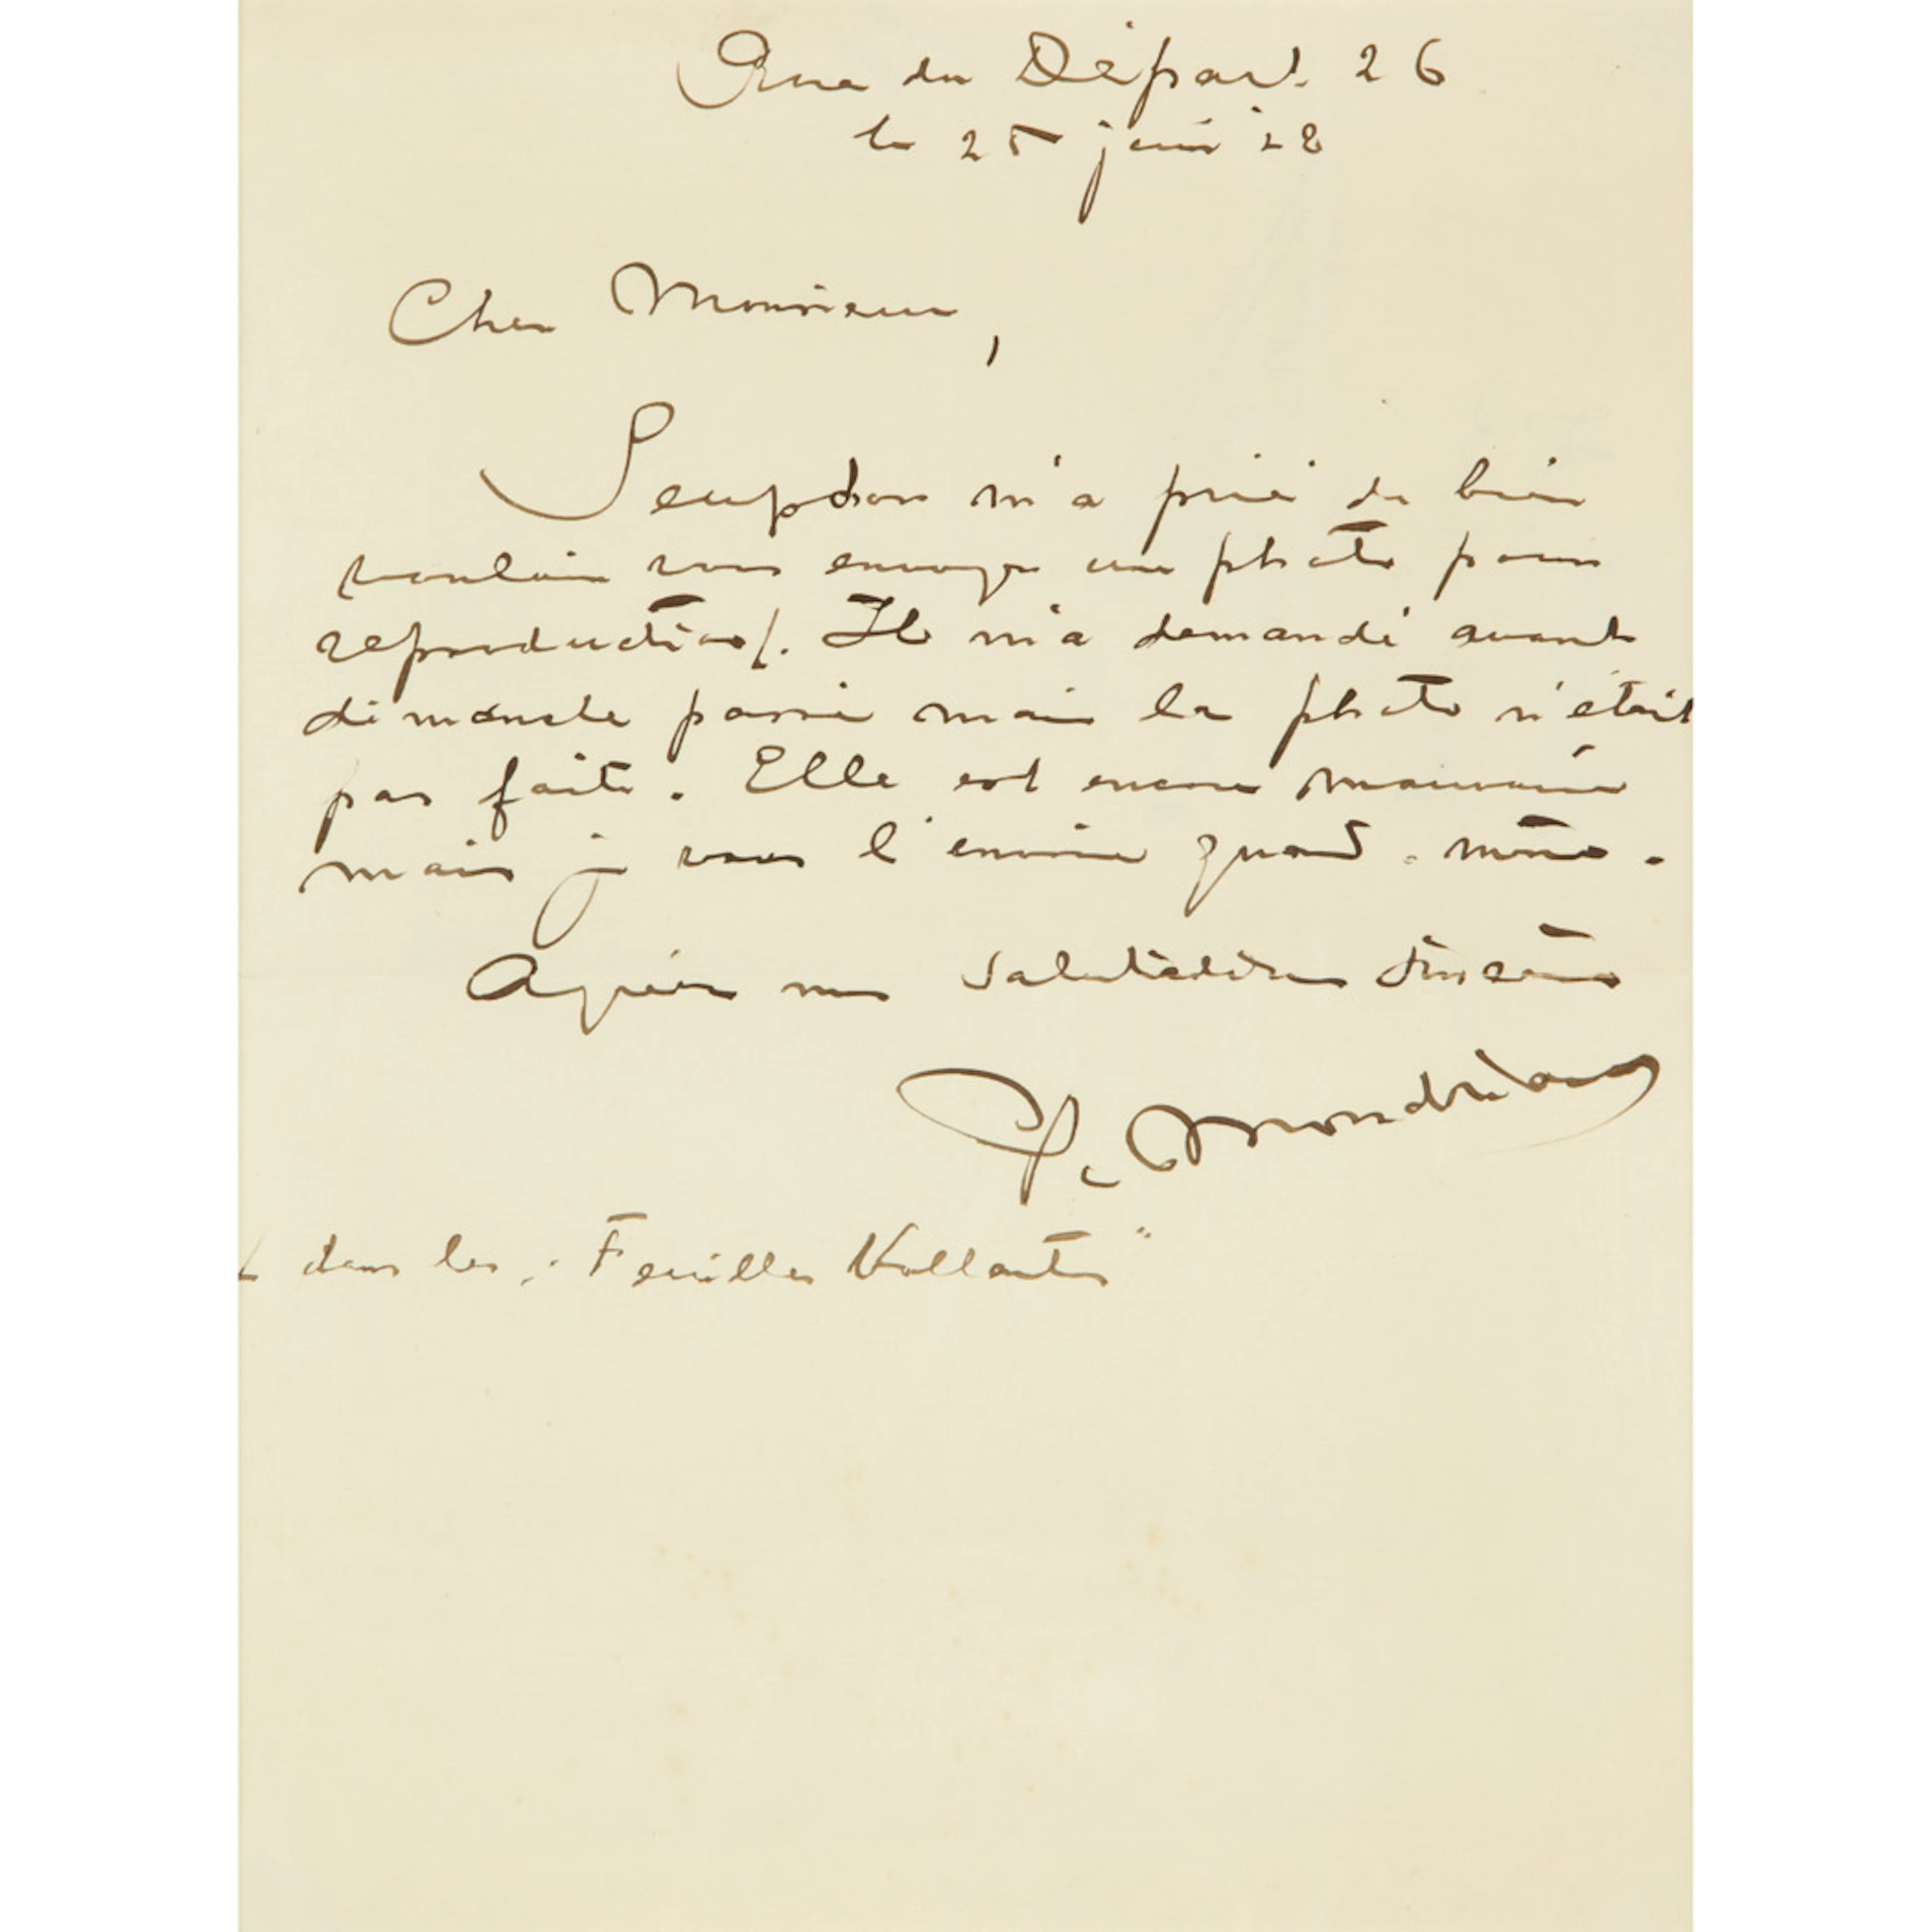 Rue du Départ 26
le 25 juin '28
Cher Monsieur,
Seuphor m'a prié de bien
vouloir vous envoyer une photo pour
reproduction/. Il m'a demandé avant
dimanche passé mais la photo n'était
pas faite. Elle est encore mauvaise
mais je vous l'envoie quand-même.
Agréez mes salutations sincères
P. Mondrian
/ dans les „Feuilles Vollantes"